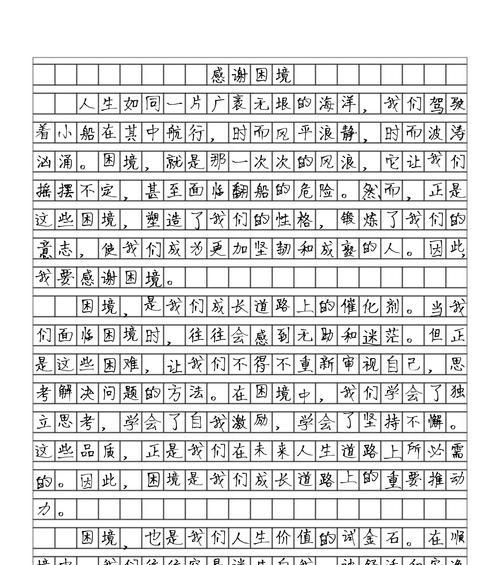 感谢困境
人生如同一片广袤无垠的海洋，我们驾驶
着小船在其中航行，时而风平浪静，时而波涛
汹涌。困境，就是那一次次的风浪，它让我们
摇摆不定，甚至面临翻船的危险。然而，正是
这些困境，塑造了我们的性格，锻炼了我们的
意志，使我们成为更加坚韧和成熟的人。因此，
我要感谢困境。
困境，是我们成长道路上的催化剂。当我
们面临困境时，往往会感到无助和迷茫。但正
是这些困难，让我们不得不重新审视自己，思
考解决问题的方法。在困境中，我们学会了独
立思考，学会了自我激励，学会了坚持不懈。
这些品质，正是我们在未来人生道路上所必需
的。因此，困境是我们成长道路上的重要推动
力。
困境，也是我们人生价值的试金石。在顺